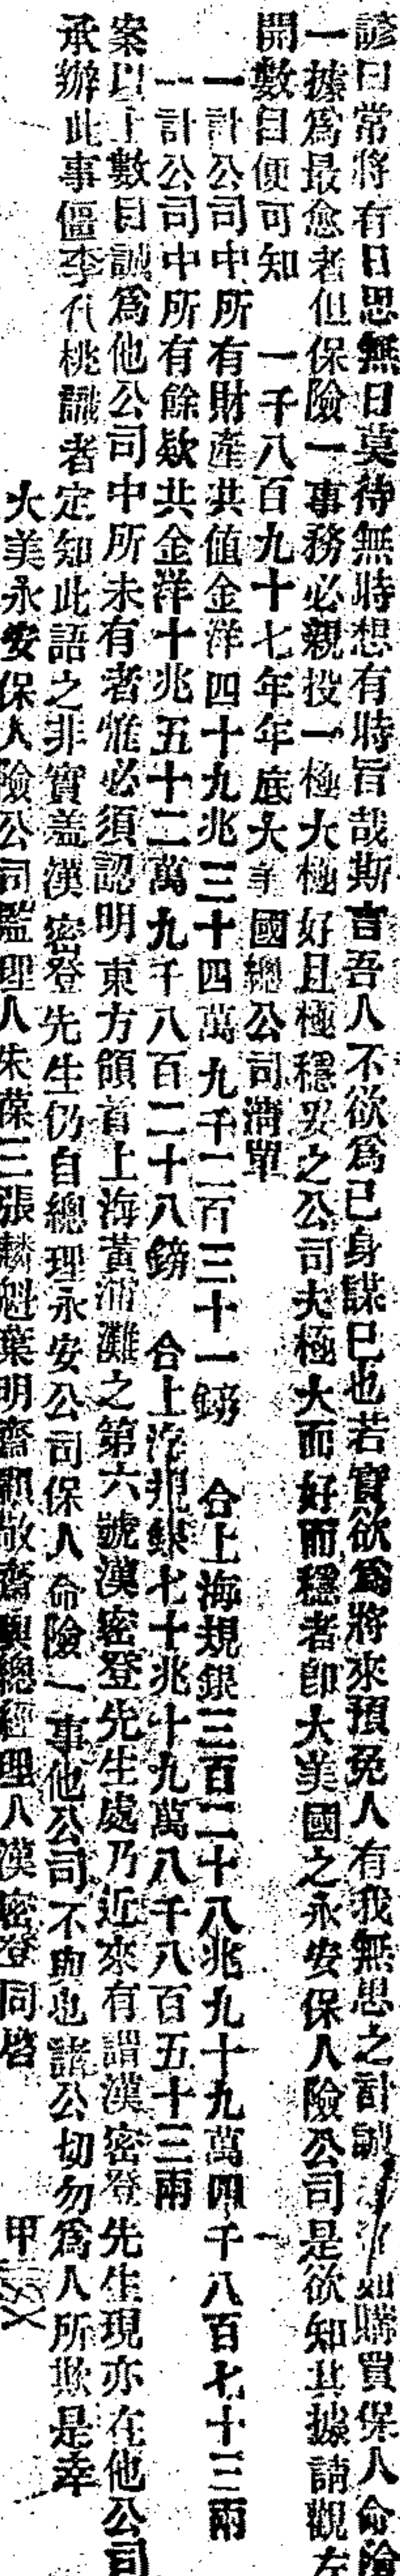 諺曰常將有日思無日莫待無時想有時旨哉斯言吾人不欲爲己身謀已也若實欲爲將來預免人有我無思之計誠如購買保人命險
一據爲最愈者但保險一事務必親投一極大極好且極穩妥之公司夫極大而好而穩者卽大美國之永安保人險公司是欲知其據請觀左
開數目便可知　一千八百九十七年年底大美國總公司淸單
一計公司中所有財產共值金洋四十九兆三十四萬九千二百三十一鎊　合上海規銀三百二十八兆九十九萬四千八百七十三兩
一計公司中所有餘欵共金洋十兆五十二萬九千八百二十八鎊　合上海規銀七十兆十九萬八千八百五十三兩
案以上數目誠爲他公司中所未有者惟必須認明東方領首上海黃浦灘之第六號漢密登先生處乃近來有謂漢密登先生現亦在他公司
承辦此事僵李代桃識者定知此語之非實蓋漢密登先生仍自總理永安公司保人命險一事他公司不與也諸公切勿爲人所欺是幸
大美永安保人險公司監理人朱葆三張麟魁葉明齋顧敬齋與總經理人漢密登同啓　甲